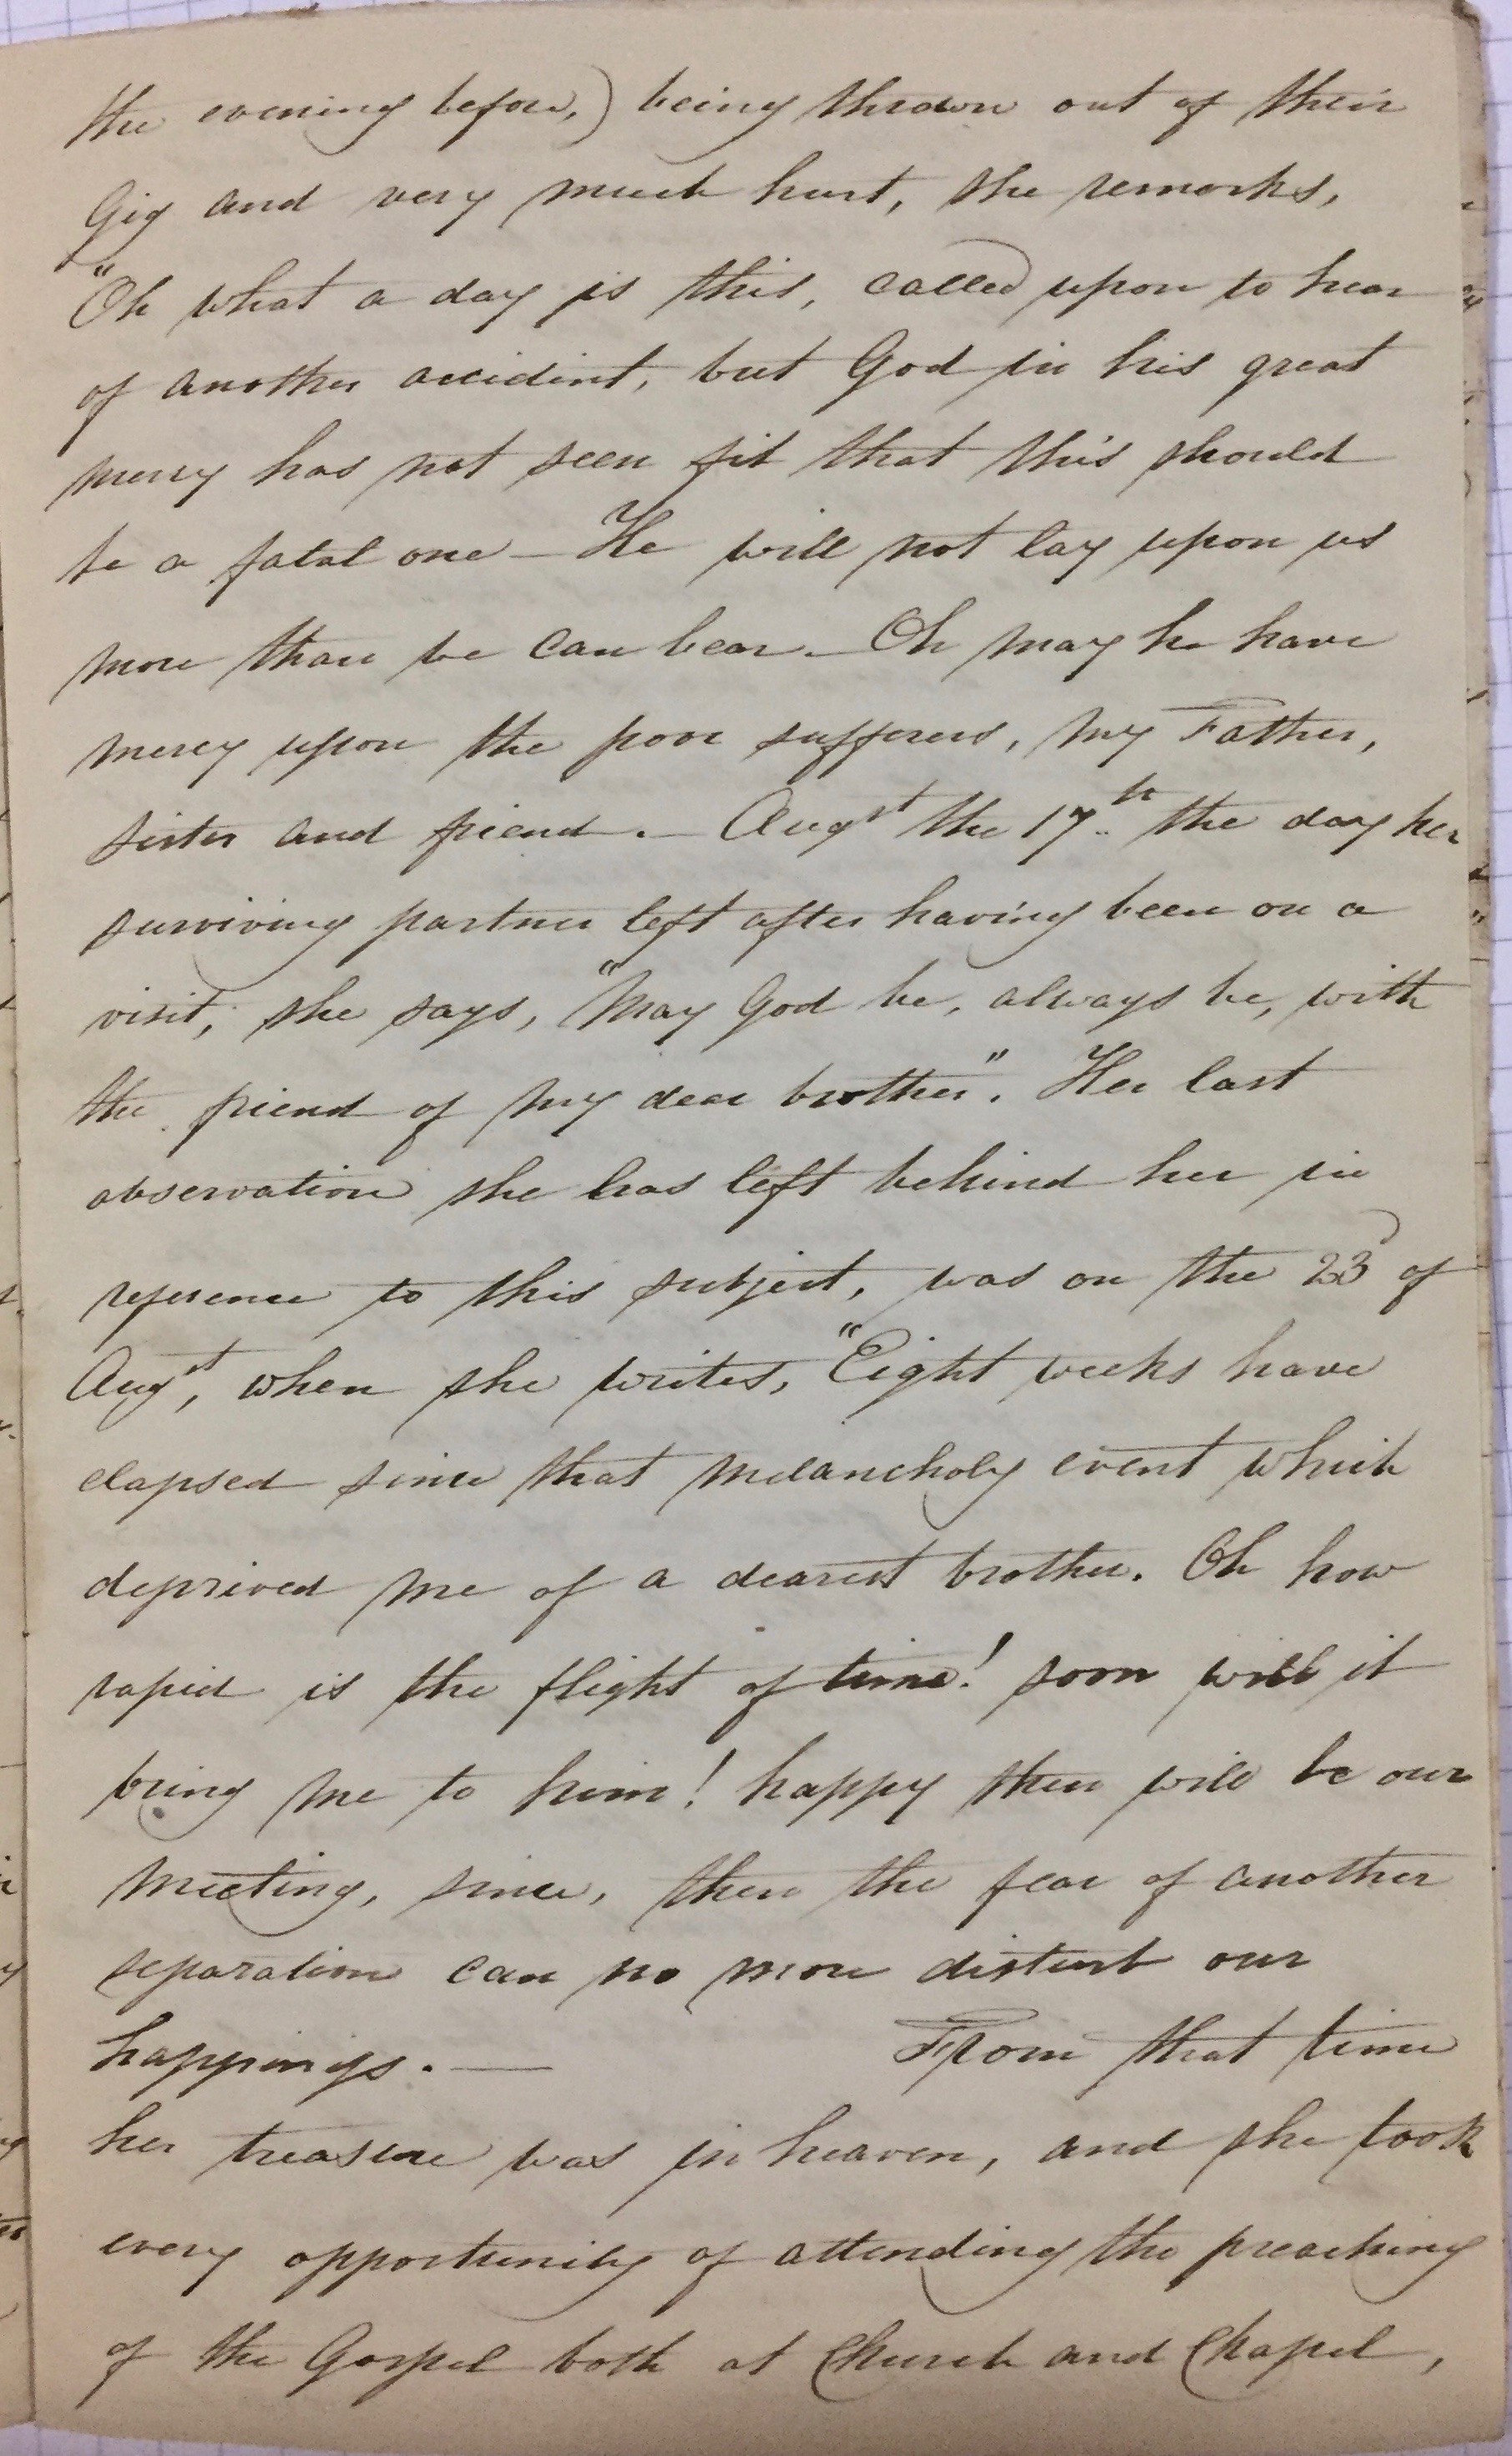 the evening before,) being thrown out of their
Gig and very much hurt, she remarks,
"Oh what a day is this, called upon to hear
of another accident, but God in his great
mercy has not seen fit that this should
be a fatal one – He will not lay upon us
more than we can bear – Oh may he have
mercy upon the poor sufferers, my Father,
sister and friend. – Augst the 17th the day her
surviving partner left after having been on a
visit, she says, "May God be, always be, with
the friend of my dear brother". Her last
observation she has left behind her in
reference to this subject, was on the 23d of
Augst, when she writes, "Eight weeks have
elapsed since that melancholy event which
deprived me of a dearest brother. Oh how
rapid is the flight of time! soon will it
bring me to him! happy then will be our
meeting, since, then the fear of another
separation can no more disturb our
happiness. — From that time
her treasure was in heaven, and she took
every opportunity of attending the preaching
of the Gospel both at Church and Chapel,